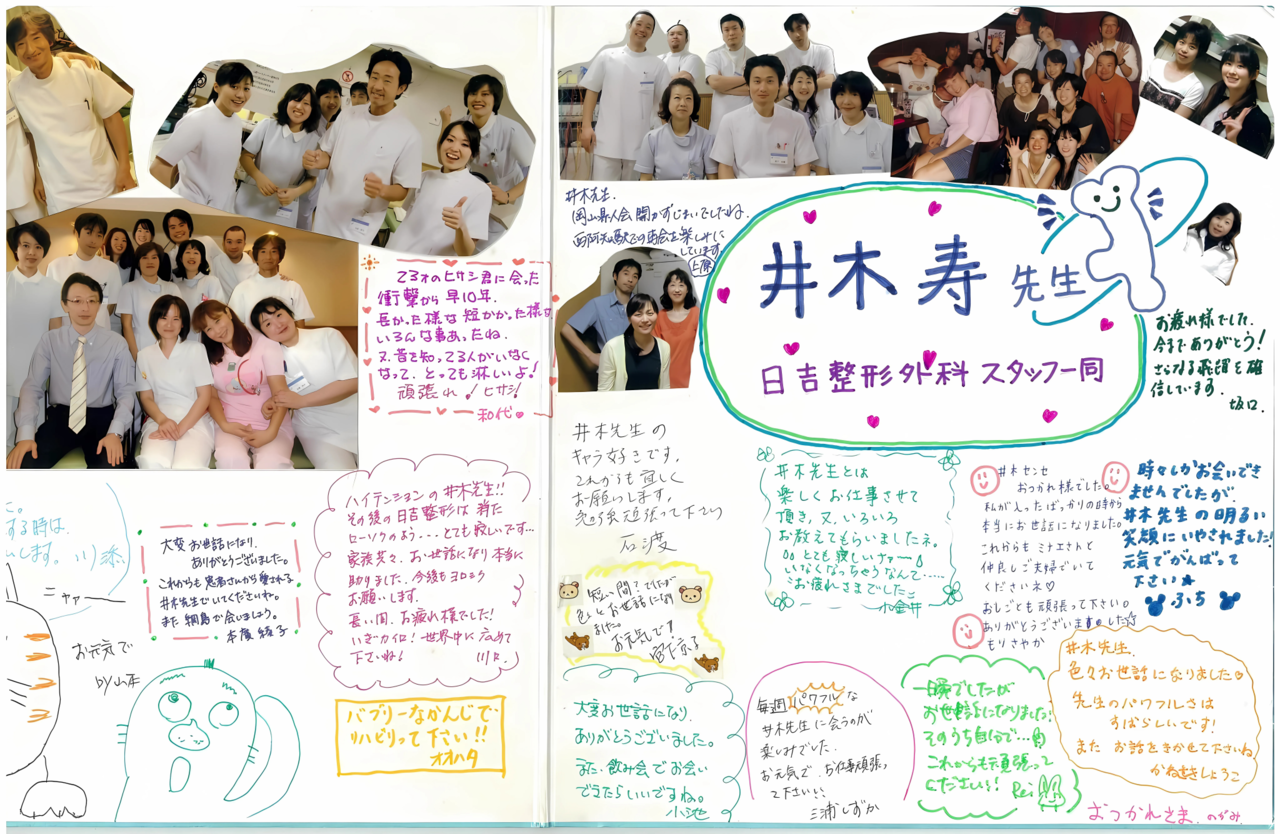 井木先生.
岡山県人会開かずじまいでしたね.
西阿知駅での再会を楽しみに
しています
上原
井木 寿 先生
日吉整形外科 スタッフ一同
お疲れ様でした.
今まであり​がとう!
さらなる飛躍を確
信しています.
坂口.
23才のヒサシ君に会った
衝撃から 早10年.
長かった様な 短かかった様な
いろんな事あったね.
又、昔を知ってる人がいなく
なって、とっても淋しいよ!
頑張れ!ヒサシ!
和代
井木先生の
キャラ好きです。
これからも宜しく
お願いします。
頑張って下さい
石渡
井木先生とは
楽しくお仕事させて
頂き、又、いろいろ
お教えてもらいましたネ。
とても寂しいナァー
いなくなっちゃうなんて・・・・
お疲れさまでしたこ
小金井
井木センセ
おつかれ様でした。
私が入ったばっかりの時から
本当にお世話になりました。
これからも ミナエさんと
仲良しご夫婦でいて
くださいネ♡
おしごとも頑張って下さい。
ありがとうございますました☆
もりさやか
時々しかお会いでき
ませんでしたが、
井木先生の明るい
笑顔にいやされました!
元気でがんばって
下さい★
ふち
する時は、
します。川添
ニャァー
大変お世話になり、
ありがとうございました。
これからも患者さんから愛される
井木先生でいてくださいね。
また 綱島で会いましょう。
本廣 綾子
お元気で
by山本
ハイテンションの 井木先生!!
その後の日吉整形は 消た
ローソクのよう・・・とても寂しいです…
家族共々、お世話になり 本当に
助りました、今後もヨロシク
お願いします。
長い間、お疲れ様でした!
いざカイロ!世界中に広めて
下さいね!
バブリーなかんじで
リハビリって下さい!!
オオハタ
短い間でしたが
色々とお世話になり
ました。
お元気で
大変お世話になり、
ありがとうございました。
また、飲み会でお会い
できたらいいですね。
小池
毎週 パワフル な
井木先生に会うのが
楽しみでした。
お元気で、お仕事頑張っ
て下さい!
三浦しずか
一瞬でしたが
お世話になりました!
そのうち自分で…
これからも頑張って
ください!
Rei
井木先生.
色々お世話になりました
先生のパワフルさは
すばらしいです!
また お話をきかせて下さいね
かねまきしょうこ
おつかれさま. のぞみ.